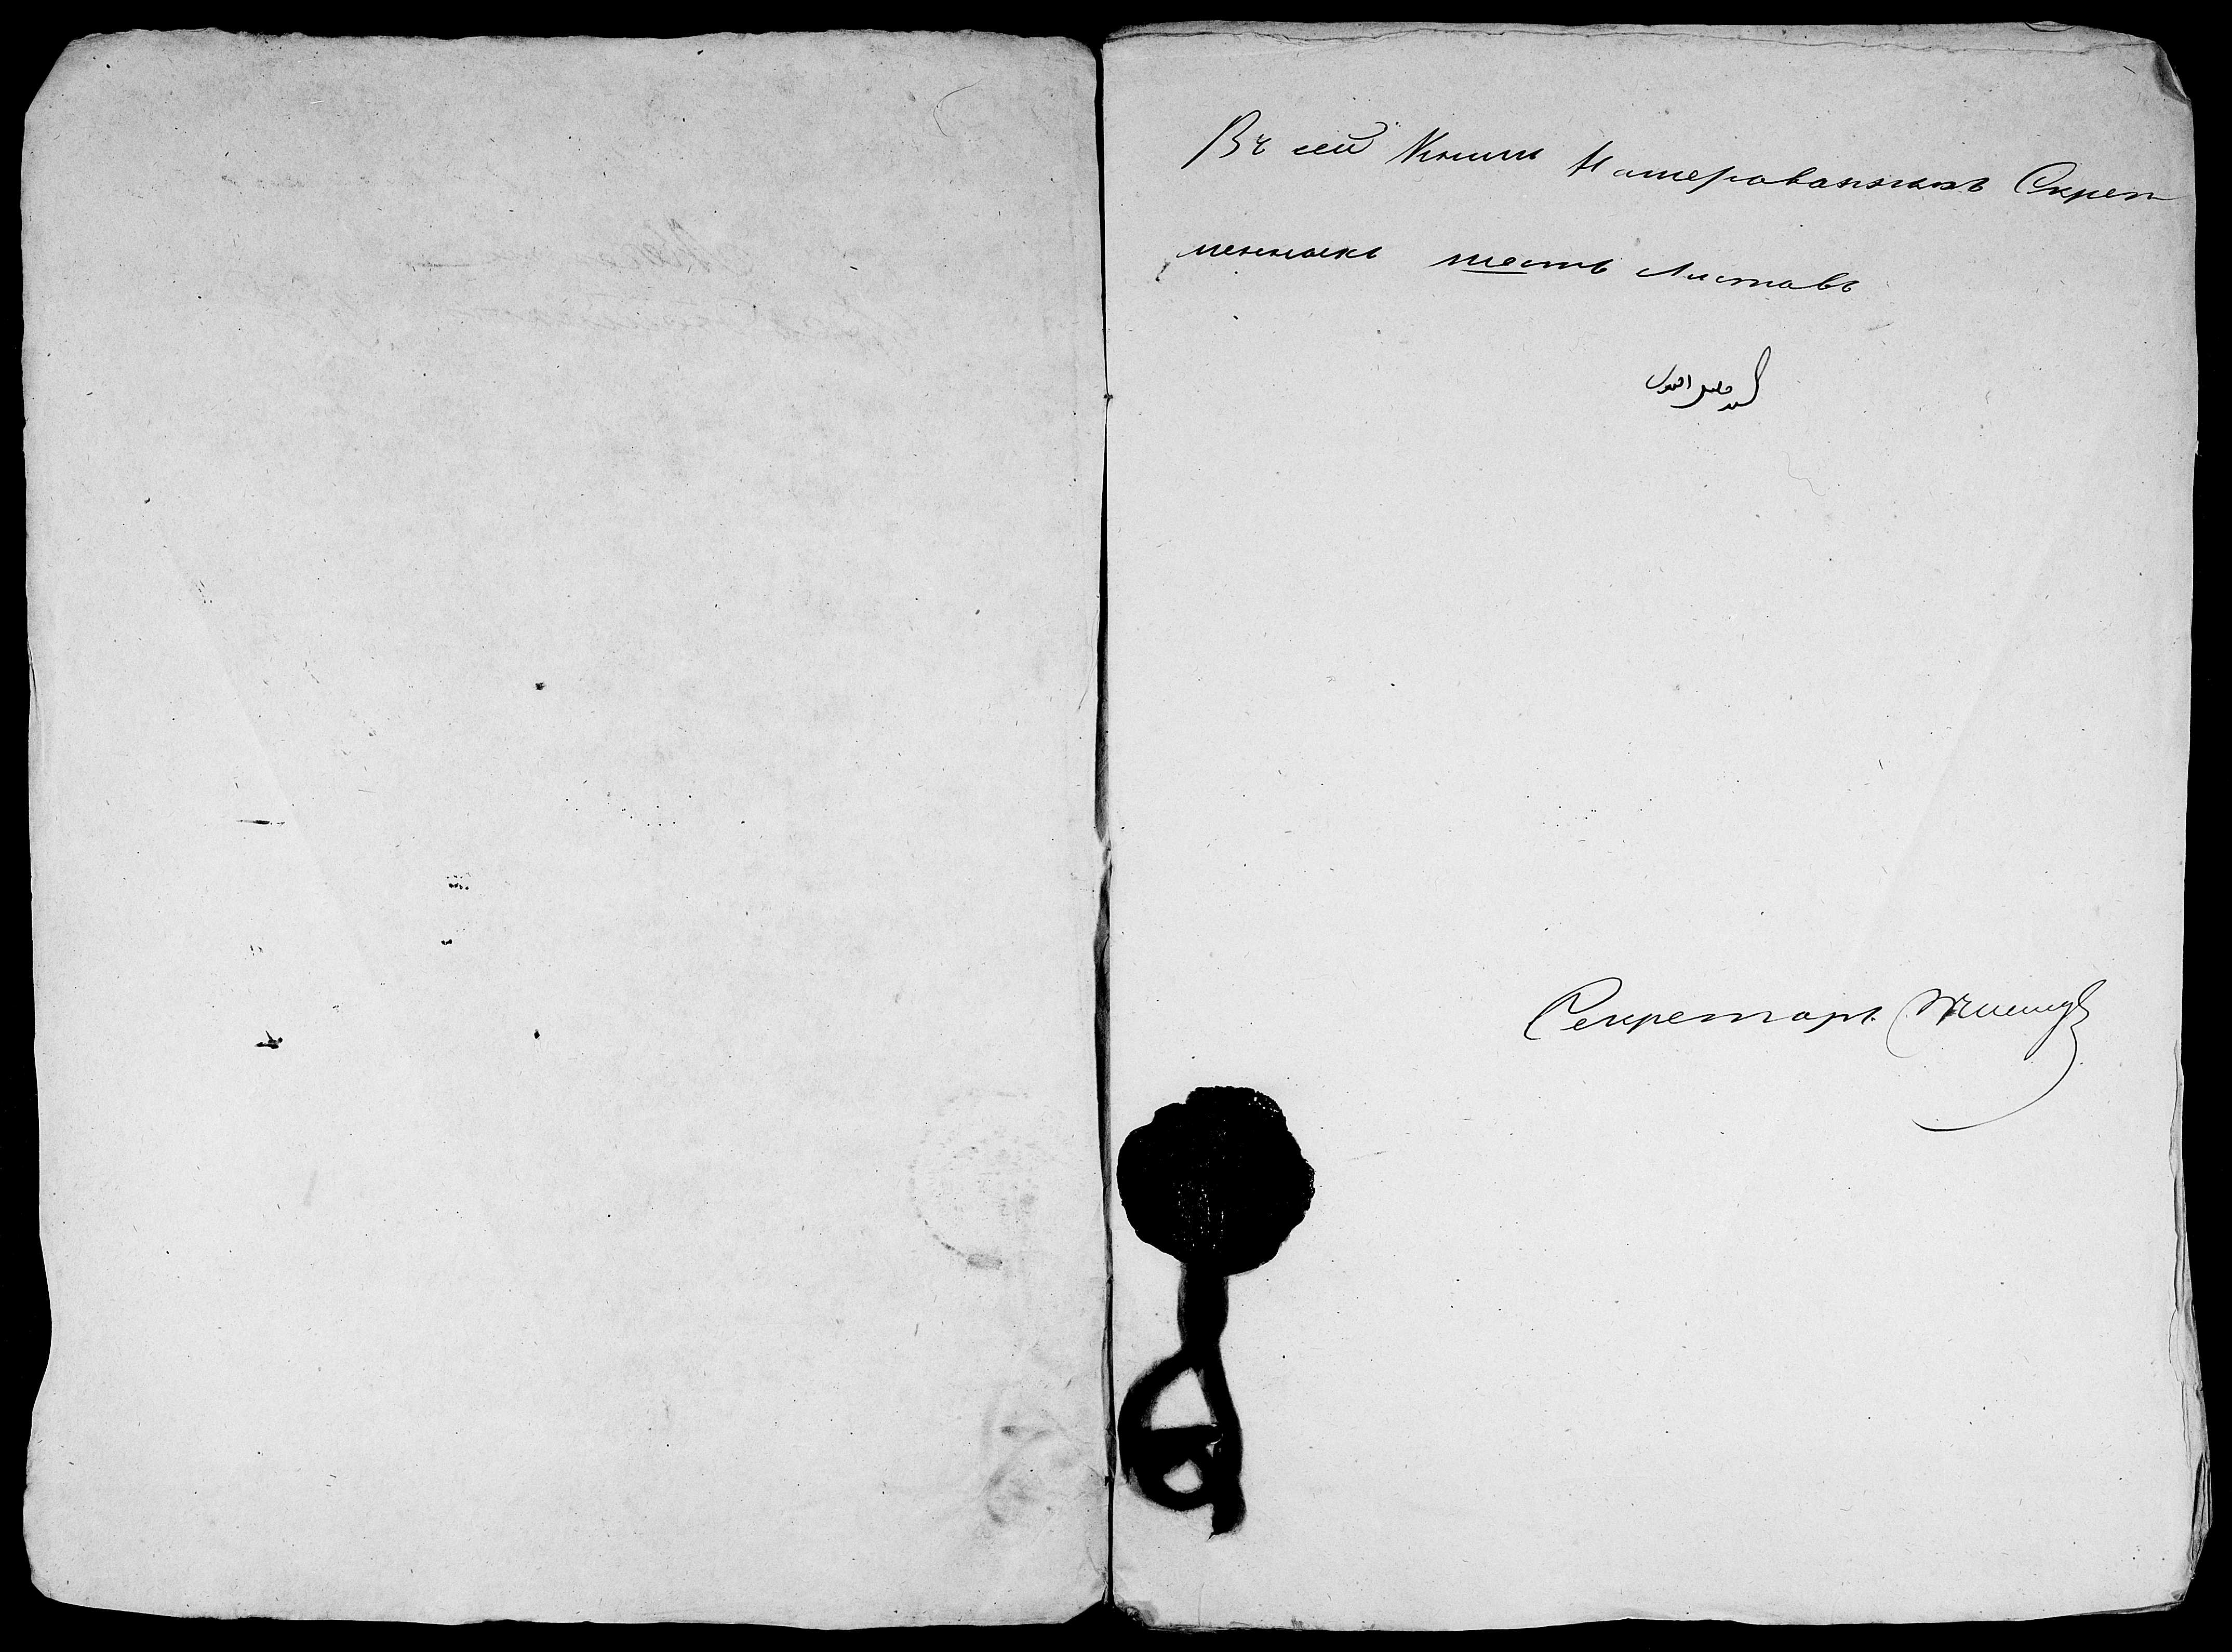 Въ сей Книги Намерованныхъ Скреп
ленныхъ шесть Листовъ
Секретарь